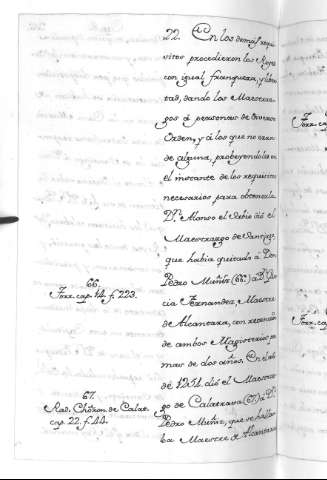 22. En los demas requi
sitos procedieron los Reyes
con igual franqueza, y liber
tad, dando los Maestraz
gos á personas de diversa
Orden, y á los que no eran
de alguna, proveyendolos en
el instante de los requisitos
necesarios para obtenerla.
Dn. Alonso el Sabio dió el
Maestrazgo de Santiago,
que habia quitado á Don
Pedro Muñiz (66.) á Dn.
cia Fernandez, Maestre
de Alcantara, con retencion
de ambos Magisterios por
mas de dos años. En el de
de 1254. dió el Maestraz
go de Calatrava (67.) á Dn.
Pedro Muñiz, que se halla
ba Maestre de Alcantara
66.
Torr. cap. 14. f. 223.
67.
Rad. Chron. de Calat.
cap. 22. f. 44.